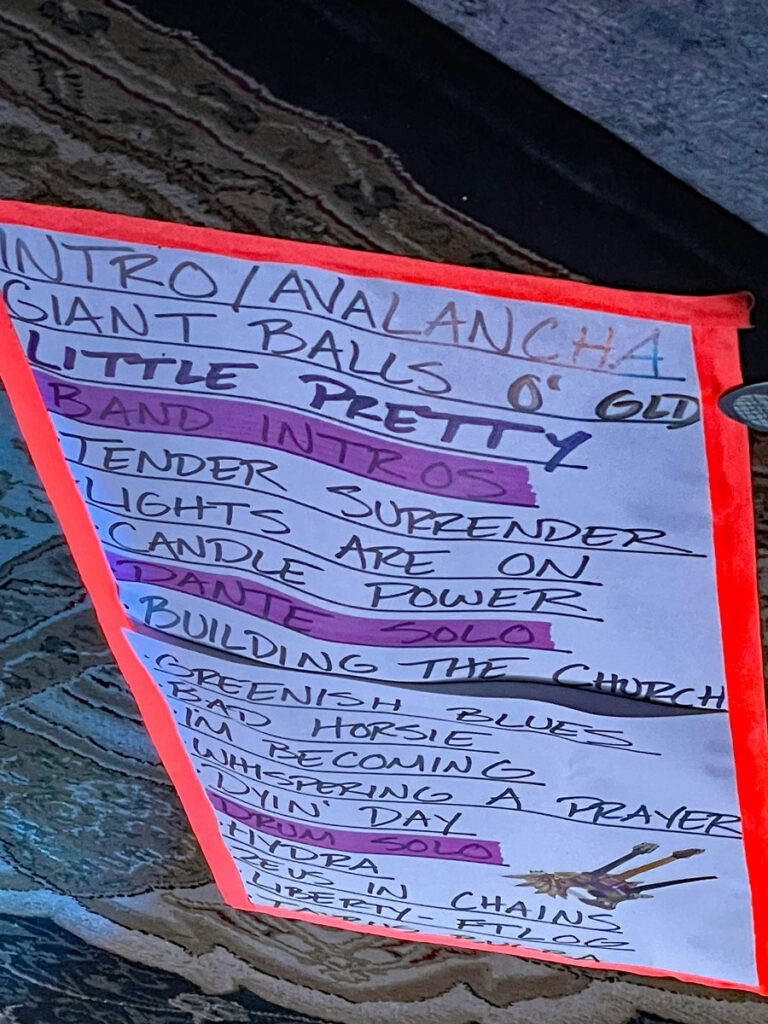 INTRO/AVALANCHA
GIANT BALLS O' GLD
LITTLE PRETTY
BAND INTROS
TENDER SURRENDER
LIGHTS ARE ON
CANDLE POWER
DANTE SOLO
BUILDING THE CHURCH
GREENISH BLUES
BAD HORSIE
IM BECOMING
WHISPERING A PRAYER
DYIN' DAY
DRUM SOLO
HYDRA
ZEUS IN CHAINS
LIBERTY - FTLOG